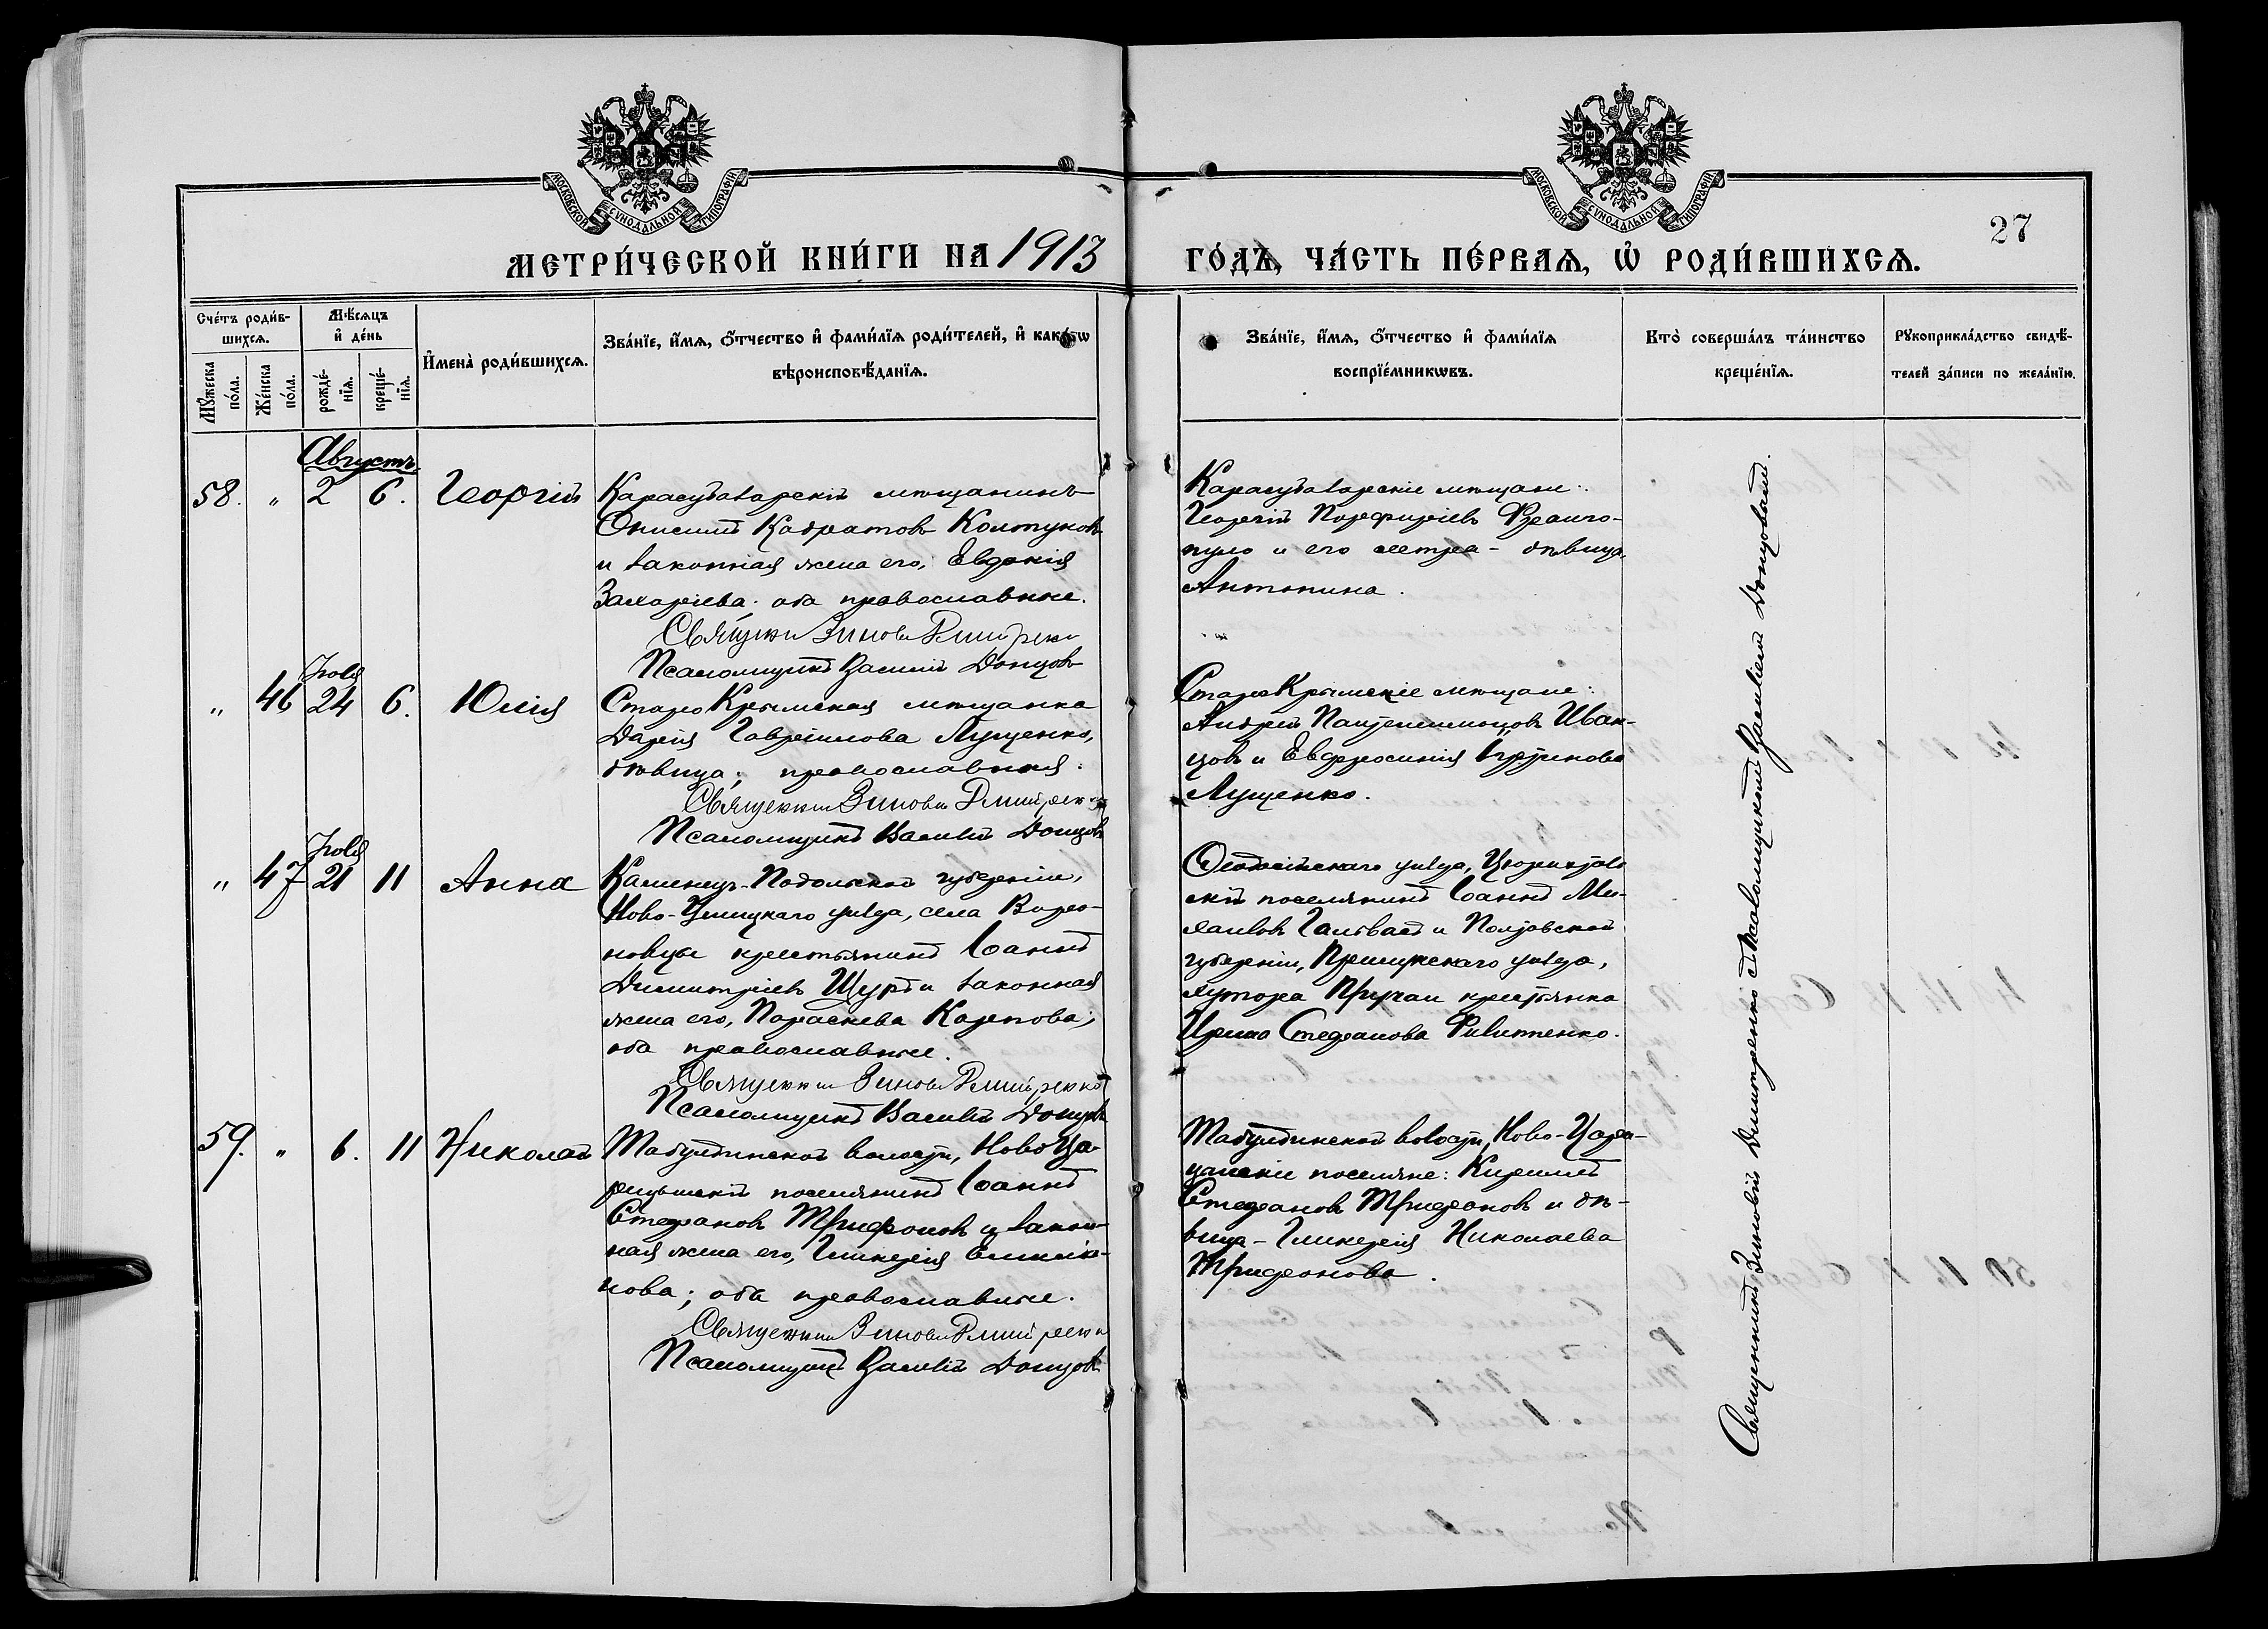 МОСКОВСКОЙ СѴНОДАЛЬНОЙ ТИПОГРАФІИ
МОСКОВСКОЙ СѴНОДАЛЬНОЙ ТИПОГРАФІИ
27
МЕТРИ́ЧЕСКОЙ КНИ́ГИ НА 1913
ГО́ДЪ, ЧА́СТЬ ПЕ́РВАѦ, Ѡ҆ РОДИ́ВШИХСѦ.
Сче́тъ роди́в-
шихсѧ.
Мꙋ́жеска
по́ла.
Же́нска
по́ла.
Мѣ́сѧцъ
и҆ де́нь
рожде́-
нїѧ.
креще́-
нїѧ.
И҆мена̀ роди́вшихсѧ.
Зва́нїе, и҆́мѧ, ѻ҆́тчество и҆ фами́лїѧ роди́телей, и҆ како́гѡ
вѣроисповѣ́данїѧ.
Зва́нїе, и҆́мѧ, ѻ҆́тчество и҆ фами́лїѧ
воспрїе́мникѡвъ.
Кто̀ соверша́лъ та́инство
креще́нїѧ.
Рꙋкоприкла́дство свидѣ́-
телей за́писи по жела́нїю.
Августъ.
58. " 2 6. Георгій
Карасубазарскій мѣщанинъ
Онисимъ Кодратовъ Колтуновъ
и законная жена его, Евдокія
Захаріева; оба православные.
Псаломщикъ Василій Донцовъ
Карасубазарскіе мѣщане:
Георгій Порфиріевъ
и его сестра - дѣвица
Антонина.
Іюля
" 46 24 6. Юлія
Старо Крымская мѣщанка
Дарія Гавріилова Лущенко,
дѣвица; православная.
Священникъ Зиновій Дмитренко
Псаломщикъ Василій Донцовъ
Старо Крымскіе мѣщане:
Андрей Пантелеимоновъ Иван-
цовъ и Евфросинія
Лущенко.
Іюля
" 47 21 11 Анна
Каменецъ-Подольской губерніи,
Ново-Ушицкаго уѣзда, села
крестьянинъ Іоаннъ
Димитріевъ и законная
жена его, Параскева Карпова;
оба православные.
Священникъ Зиновій Дмитренко
Псаломщикъ Василій Донцовъ
Ѳеодосійскаго уѣзда,
скій поселянинъ Іоаннъ Ми-
хаиловъ и Полтавской
губерніи, Прилукскаго уѣзда,
хутора крестьянка
Ирина Стефанова
59. " 6. 11 Николай
Табулдинской волости, Ново Ца-
рицынскій поселянинъ Іоаннъ
Стефановъ Трифоновъ и закон-
ная жена его, Гликерія
оба православные.
Священникъ Зиновій Дмитренко
Псаломщикъ Василій Донцовъ
Табулдинской волости, Ново-Цари-
цынскіе поселяне: Кириллъ
Стефановъ Трифоновъ и дѣ-
вица - Гликерія Николаева
Трифонова.
Священникъ Зиновій Дмитренко съ псаломщикомъ Василіемъ Донцовымъ.